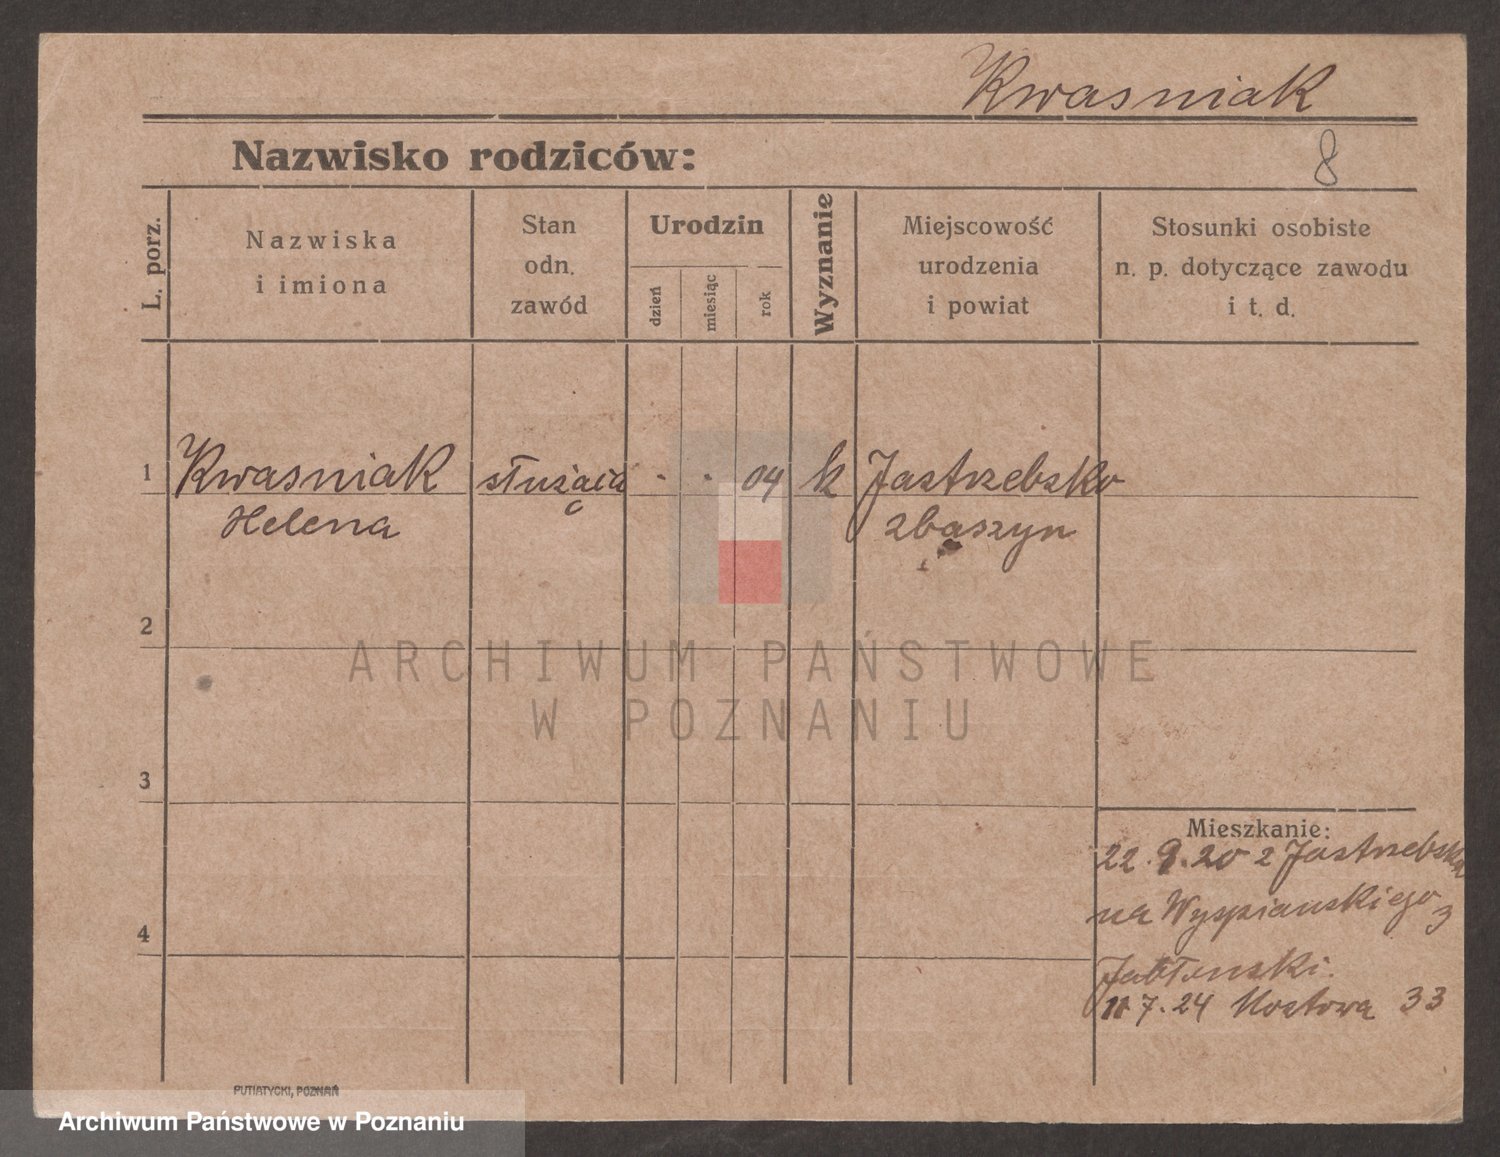 Kwasniak
Nazwisko rodziców:
8
L. porz.
Nazwiska
i imiona
Stan
odn.
zawód
Urodzin
dzień
miesiąc
rok
Wyznanie
Miejscowość
urodzenia
i powiat
Stosunki osobiste
n. p. dotyczące zawodu
i t. d.
1
Kwasniak
Helena
służąca
. . 04
k
Jastrzebsko
zbaszyn
2
ARCHIWUM PAŃSTWOWE
W POZNANIU
3
4
Mieszkanie:
22.9.20 z Jastrzebska
na Wyspianskiego 3
11 7.24 33
PUTIATYCKI, POZNAŃ
Archiwum Państwowe w Poznaniu